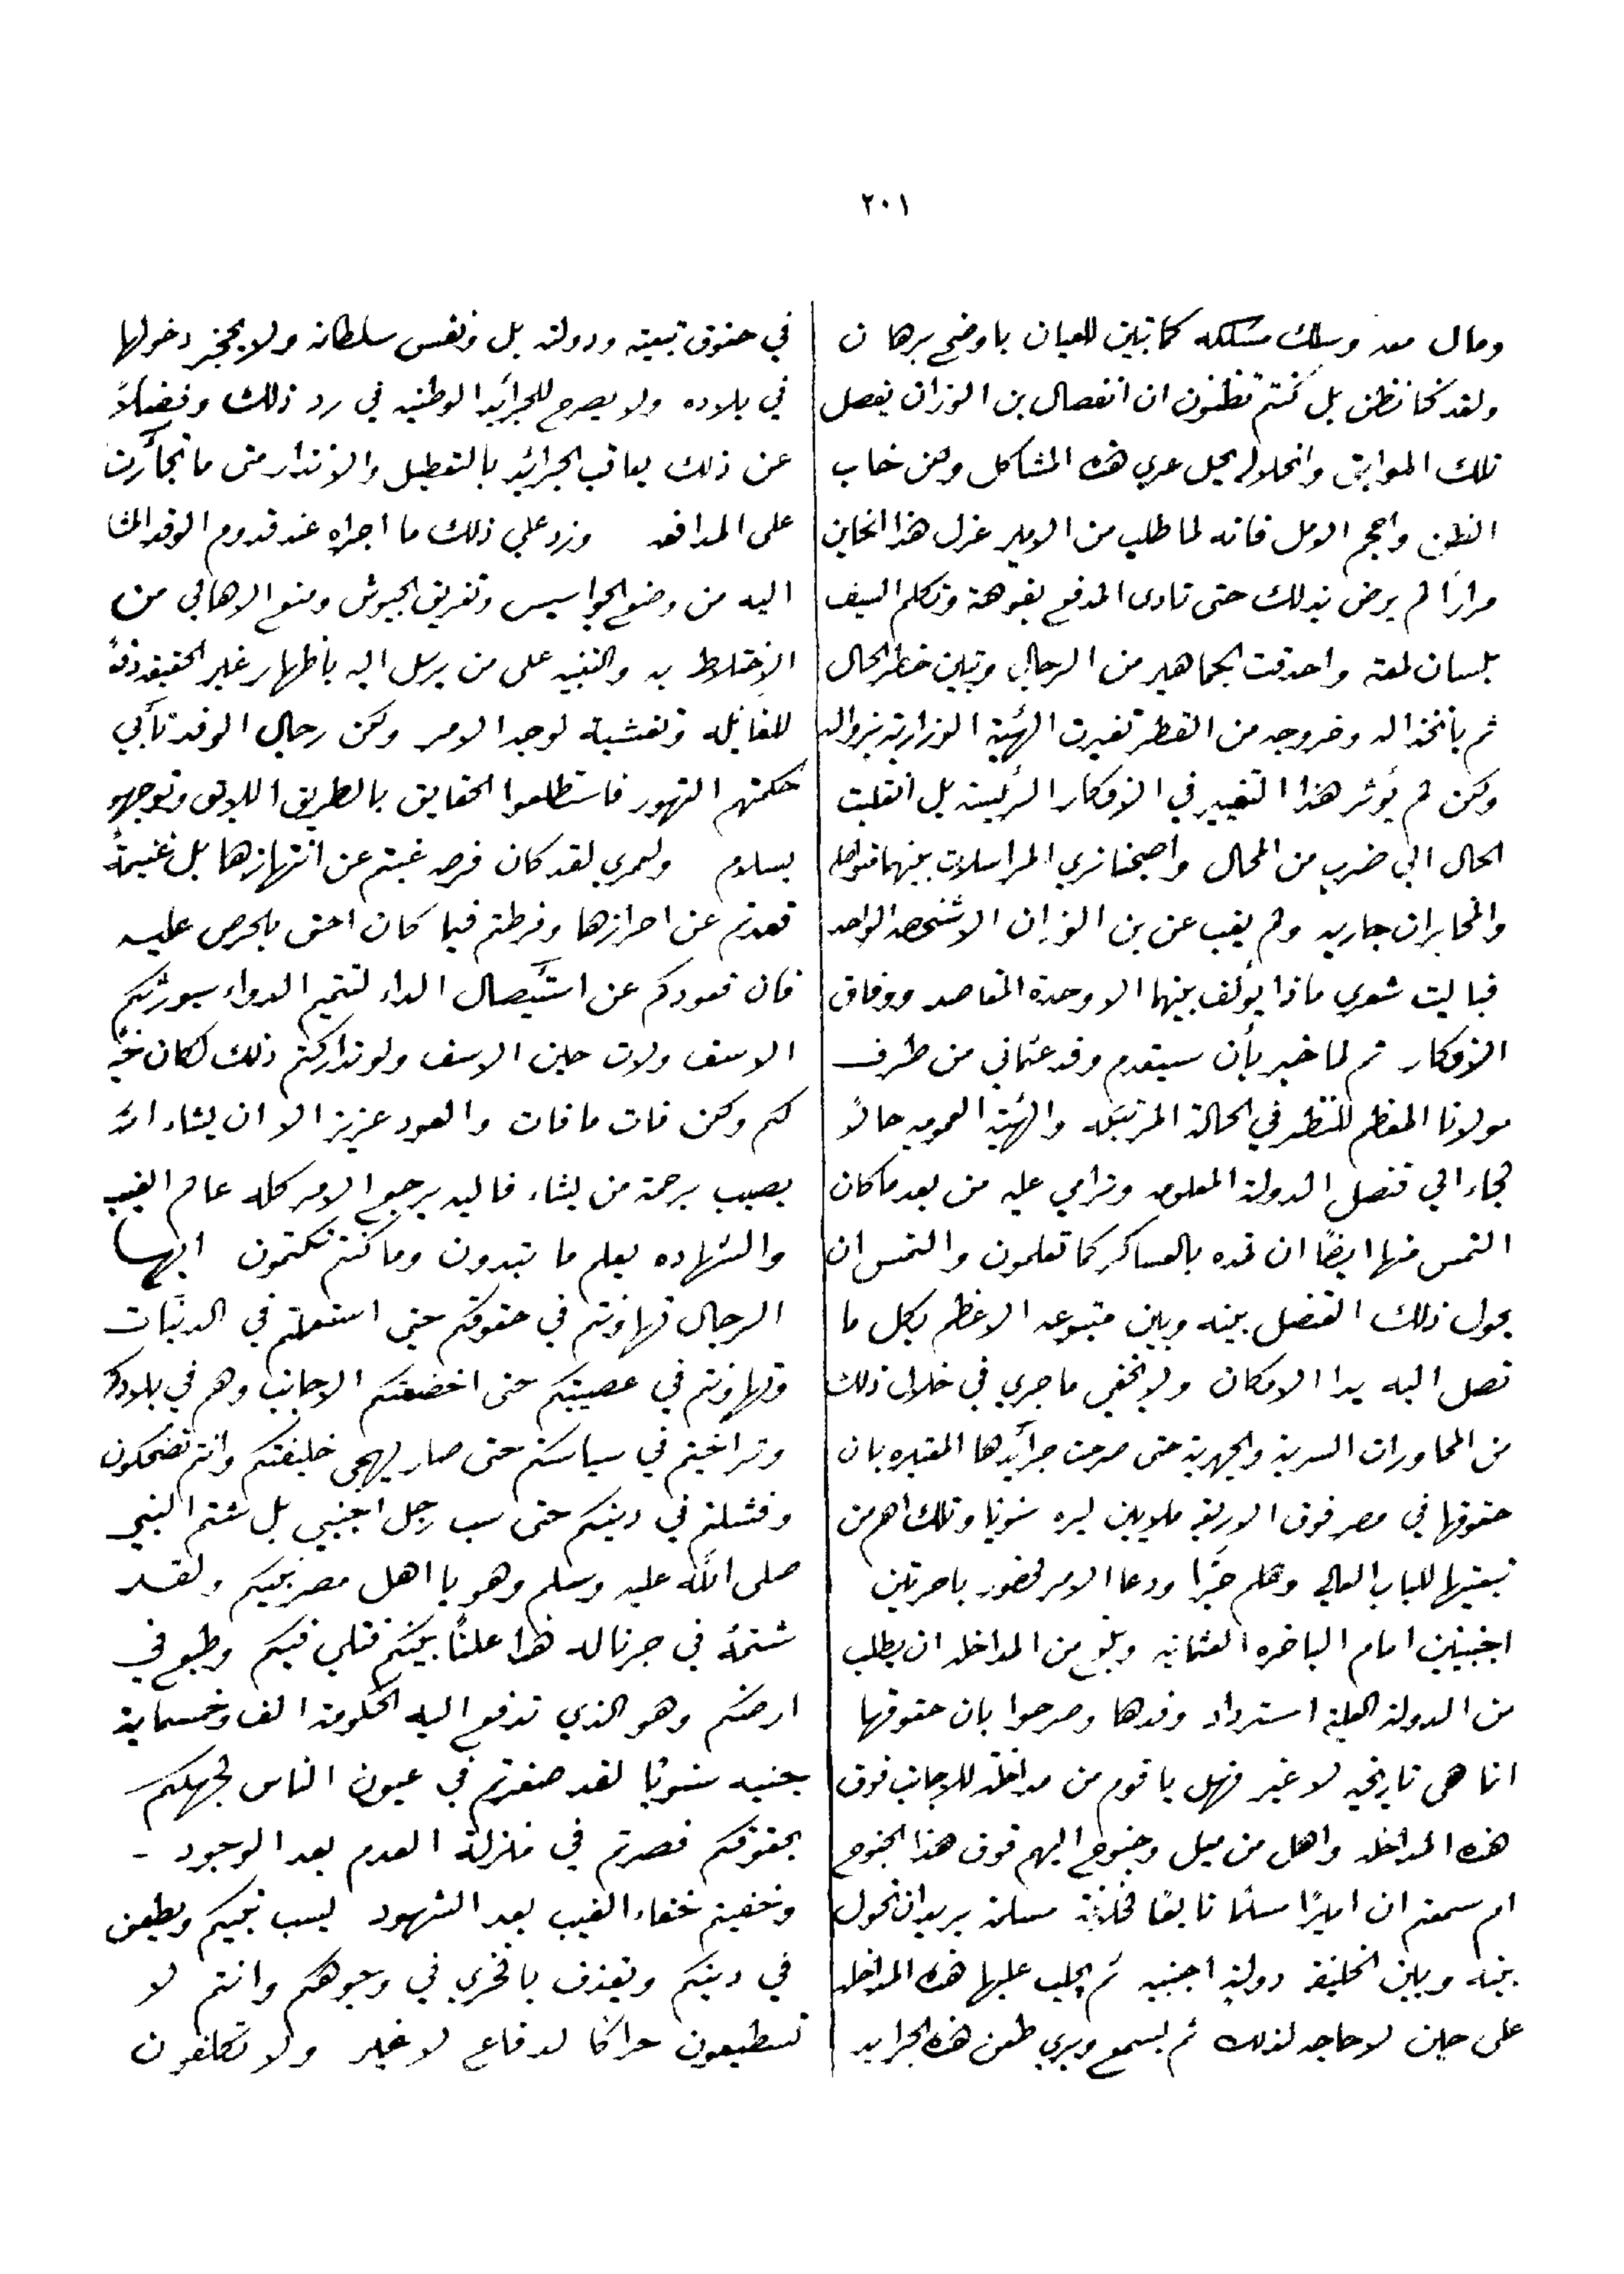 ٢٠١
ومال معه وسلك مسلكه كما تبين للعيان باوضح برهان
ولقد كنا نظن بل كنتم تظنون ان انفصال بن الوزان يفصل
تلك المواثق وانحلاله يحل عري هذه المشاكل ولكن خاب
الظن واحجم الامل فانه لما طلب من الامير عزل هذا الخاين
مرارًا لم يرض بذلك حتى نادى المدفع بفوهته وتكلم السيف
بلسان لمعته واحدقت الجماهير من الرجال وتبين خطر الحال
ثم بانخذاله وخروجه من القطر تغيرت الهيئة الوزارية بزواله
ولكن لم يؤثر هذا التغيير في الافكار الرئيسية بل انقلبت
الحال الي ضرب من المحال واصبحنا نري المراسلات بينهما متواصله
والمخابرات جاريه ولم يغب عن بن الوزان الا شخصه الواحد
فيا ليت شعري ماذا يؤلف بينهما الا وحدة المقاصد ووفاق
الافكار ثم لما خبر بأن سيتقدم وفد عثماني من طرف
مولانا المعظم للنظر في الحالة المرتبكه والهيئة العموميه حالًا
لجاء الي قنصل الدولة المعلومه وترامي عليه من بعد ما كان
التمس منها ايضًا ان تمده بالعساكر كما تعلمون والتمس ان
يحول ذلك القنصل بينه وبين متبوعه الاعظم بكل ما
تصل اليه يد الامكان ولا يخفي ما جري في خلال ذلك
من المحاورات السرية والجهرية حتى صرحت جرائدها المعتبره بان
حقوقها في مصر فوق الاربعة ملايين ليره سنويًا وتلك اهم من
تبعيتها للباب العالي وهلم جرًا ودعا الامر لحضور باخرتين
اجنبيتين امام الباخره العثمانيه وبلغ من المداخله ان يطلب
من الدولة العلية استرداد وفدها وصرحوا بان حقوقها
انما هي تاريخيه لا غير فهل يا قوم من مداخلة للاجانب فوق
هذه المداخله واهل من ميل وجنوح اليهم فوق هذا الجنوح
ام سمعتم ان اميرًا مسلمًا تابعًا لخلافة مسلمة يريد ان تحول
بينه وبين الخليفه دولة اجنبيه ثم يجلب عليها هذه المداخله
على حين لا حاجه لذلك ثم يسمع ويري طعن هذه الجرايد
في حقوق تبعيته ودولته بل ونفس سلطانه ولا يحجز دخولها
في بلاده ولا يصرح للجرائد الوطنيه في رد ذلك وفضلًا
عن ذلك يعاقب الجرائد بالتعطيل والانذار متى ما تجأرت
على المدافعه وزد علي ذلك ما اجراه عند قدوم الوفد المشا
اليه من وضع الجواسيس وتفريق الجيوش ومنع الاهالي من
الاختلاط به والتنبيه على من يرسل اليه باظهار غير الحقيقه
للغايله وتغشية لوجه الامر ولكن رجال الوفد تأبي
حكمتهم التهور فاستطلعوا الحقايق بالطريق اللايق وتوجهو
بسلام ولعمري لقد كان فرصه غبتم عن انتهازها بل غنيمةً
قعدتم عن احرازها وفرطتم فيما كان احق بالحرص عليه
فان قعودكم عن استئصال الداء لتتميم الدواء سيورثكم
الاسف ولات حين الاسف ولو تداركتم ذلك لكان
لكم ولكن فات ما فات والعود عزيز الا ان يشاء الله
يصيب برحمته من يشاء فاليه يرجع الامر كله عالم الغيب
والشهاده يعلم ما تبدون وما كنتم تكتمون ايها
الرجال تهاونتم في حقوقكم حتى استعملتم في الدنيات
وتهاونتم في عصبيتكم حتى اخضعتكم الاجانب وهم في بلادكم
وتراخيتم في سياستكم حتى صار يهجى خليفتكم وانتم تضحكون
وفشلتم في دينكم حتى سب رجل اجنبي بل شتم النبي
صلى الله عليه وسلم وهو يا اهل مصر نبيكم ولقد
شتمهُ في جرناله هذا علنًا بينكم فتلي فيكم وطبع في
ارضكم وهو الذي تدفع اليه الحكومة الف وخمسماية
جنيه سنويًا لقد صغرتم في عيون الناس لجهلكم
بحقوقكم فصرتم في منزلة العدم بعد الوجود -
وخفيتم خفاء الغيب بعد الشهود يسب نبيكم ويطعن
في دينكم ويقذف بالخزي في وجوهكم وانتم لا
تستطيعون حراكًا لدفاع لا غير ولا تكلفون